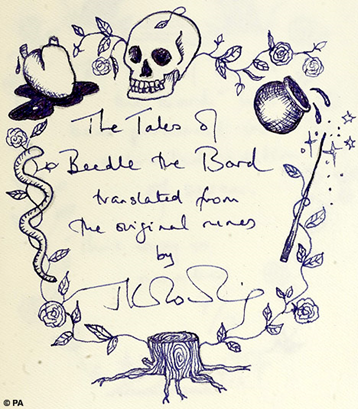 The Tales of
Beedle the Bard
translated from
the original runes
by
JK Rowling
© PA